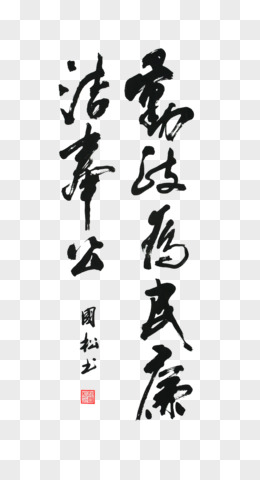 勤政為民廉
潔奉公
國松书